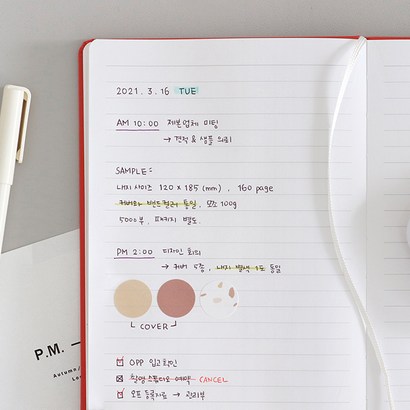 2021. 3. 16 TUE
AM 10:00 제본업체 미팅
→ 견적 & 샘플 의뢰
SAMPLE:
내지 사이즈 120 x 185 (mm), 160 page
커버와 밴드컬러 통일, 모조 100g
5000부, 패키지 별도.
PM 2:00 디자인 회의
→ 커버 5종, 내지 별색 1도 통일
COVER
OPP 입고확인
촬영 스튜디오 예약 CANCEL
오프 등록자료 → 관리부
P.M. —
Autumn/